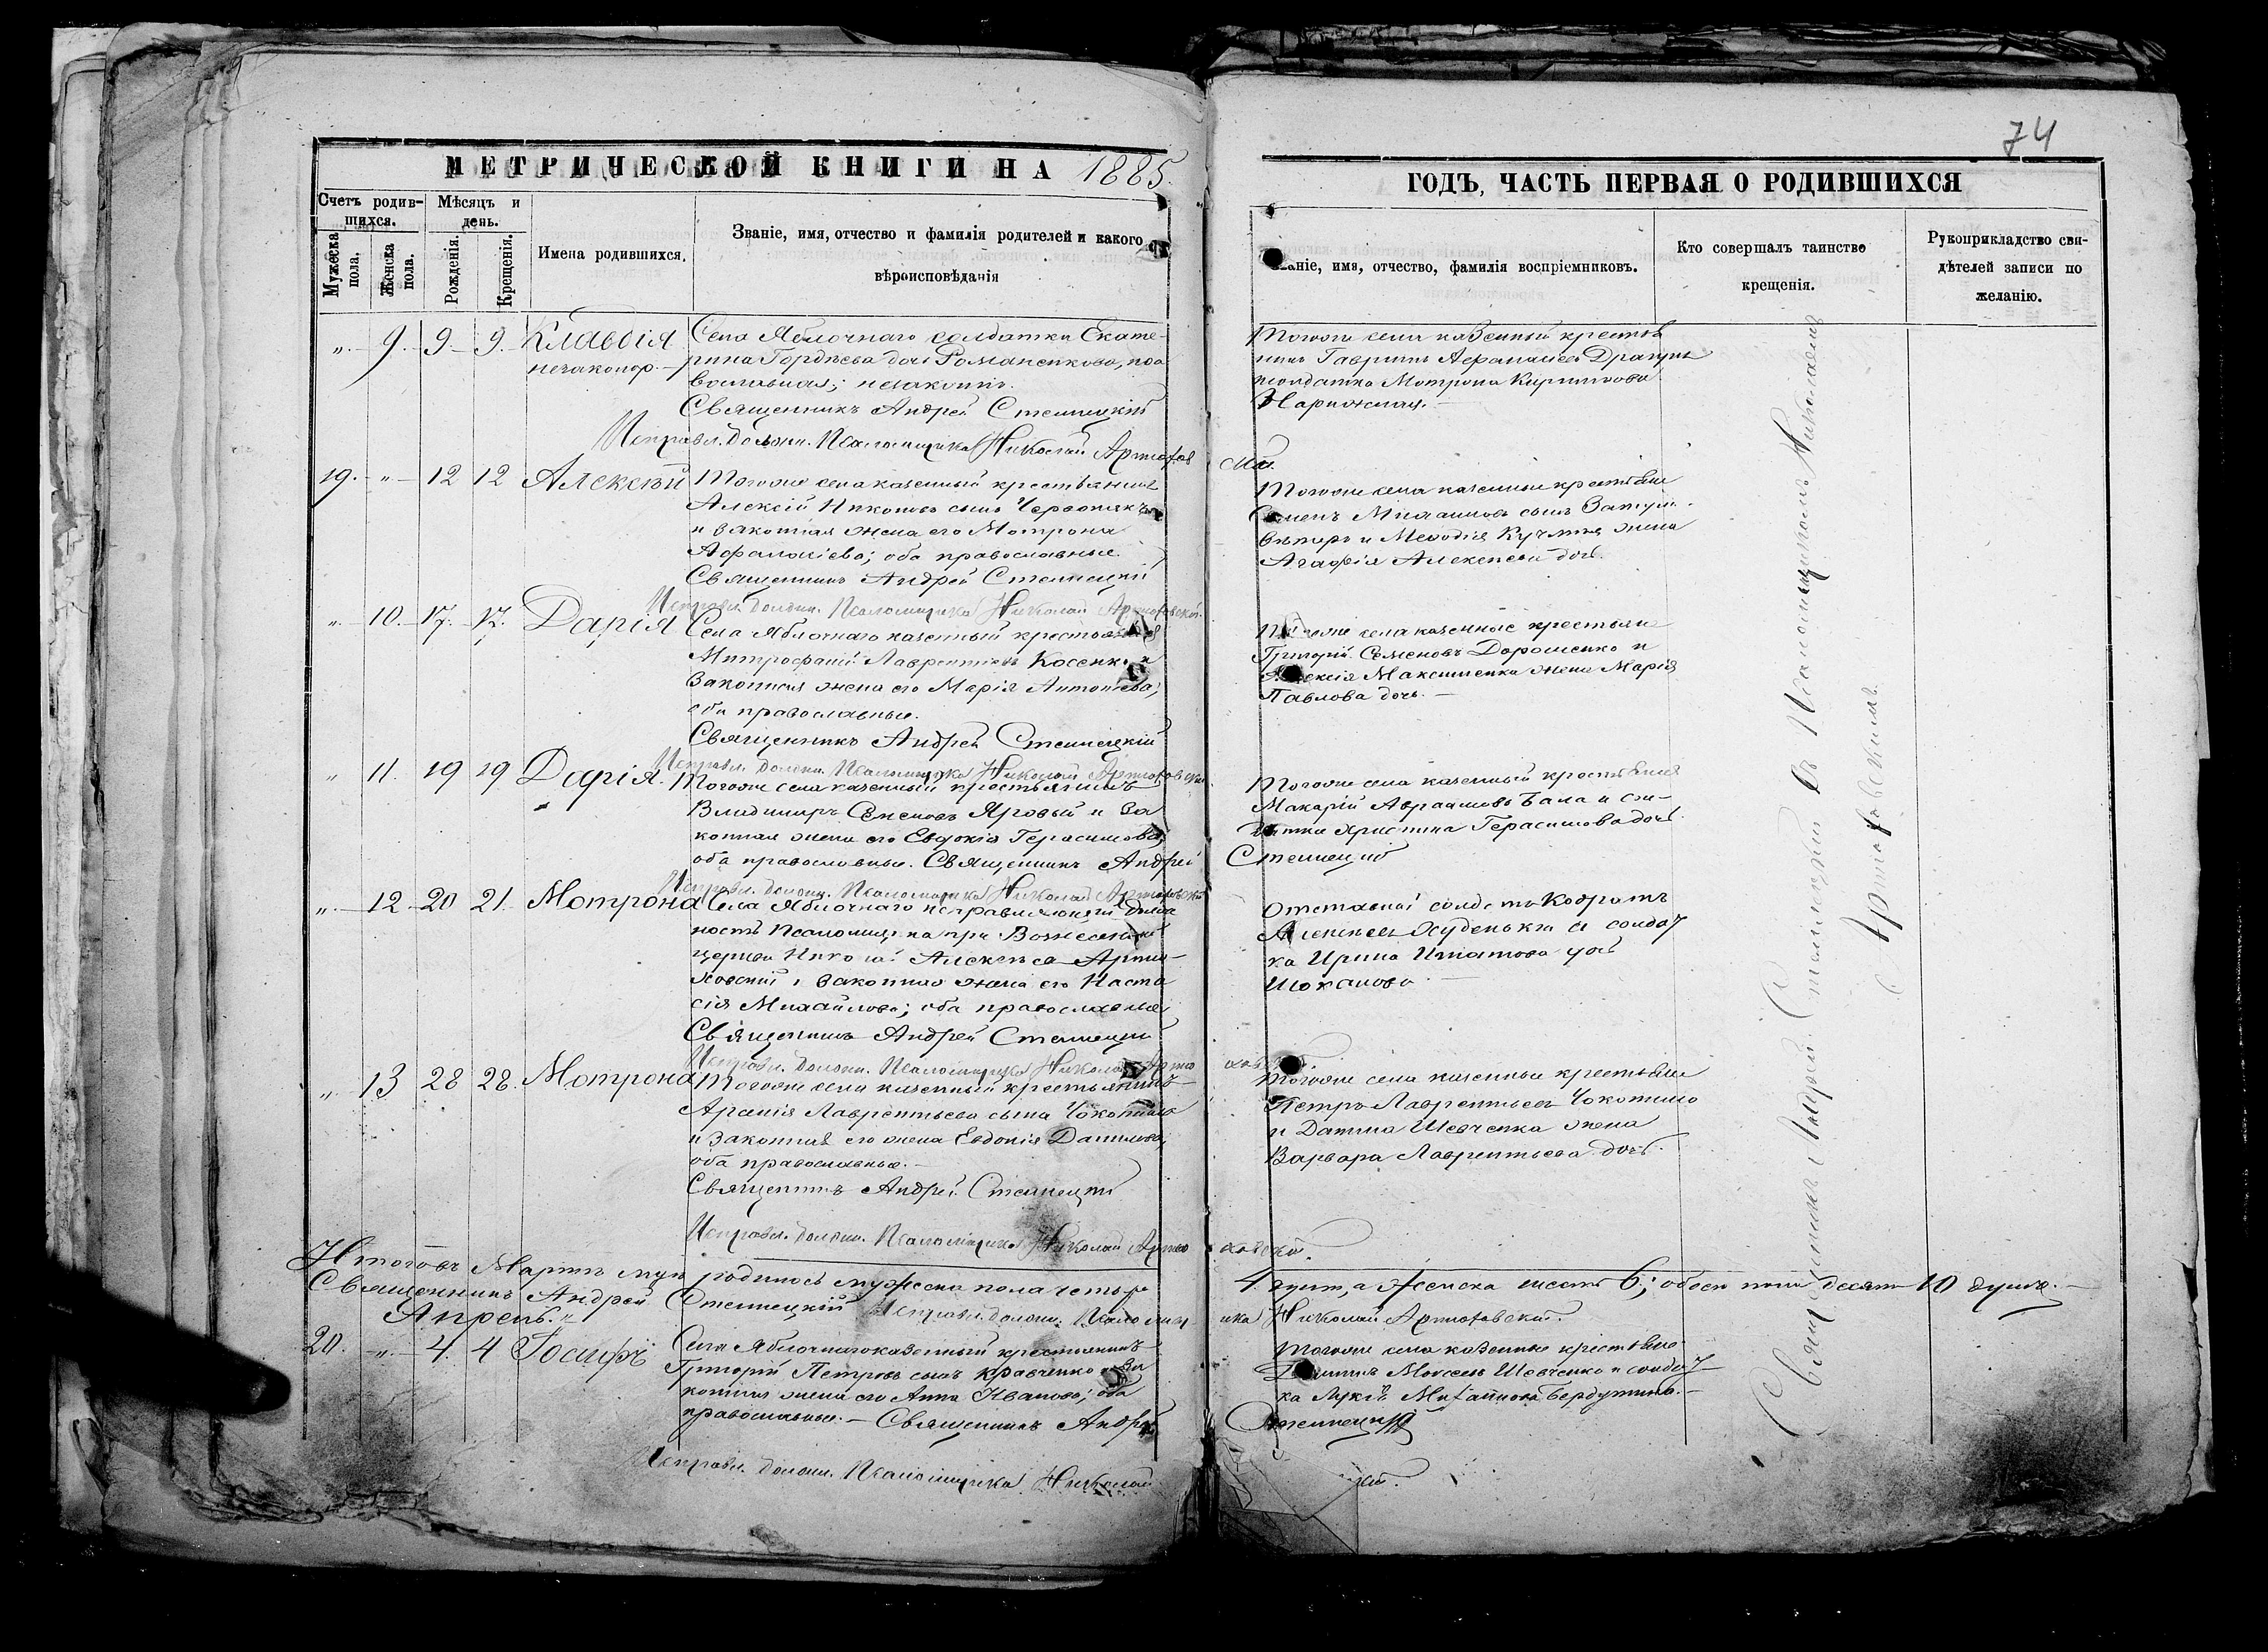 74
МЕТРИЧЕСКОЙ КНИГИ НА 1885.
ГОДЪ, ЧАСТЬ ПЕРВАЯ О РОДИВШИХСЯ
Счетъ родив-
шихся.
Мѣсяцъ и
день.
Мужеска
пола.
Женска
пола.
Рожденія.
Крещенія.
Имена родившихся.
Званіе, имя, отчество и фамилія родителей и какого
вѣроисповѣданія
Званіе, имя, отчество, фамилія воспріемниковъ.
Кто совершалъ таинство
крещенія.
Рукоприкладство сви-
дѣтелей записи по
желанію.
„ 9. 9 9. Клавдія
незаконор.
Села Яблочнаго солдатка Екате-
рина Гордѣева дочь Романенкова, пра
вославная; незаконн.
Священникъ Андрей Стеллецкій
Исправл. должн. Псаломщика Николай Артюхов
ской.
Тогоже села казенный крестья
нинъ Гавріилъ Афанасіевъ
солдатка Мотрона Кириллова
19. „ 12 12 Алексѣй
Тогоже села казенный крестьянинъ
Алексій Никоновъ сынъ
и законная жена его Мотрона
Афанасіева; оба православные.
Священникъ Андрей Стеллецкій
Исправл. должн. Псаломщика Николай Артюховской.
Тогоже села казенные крестьяне
Семенъ Михаиловъ сынъ
и Меѳодія жена
Агафія Алексѣева дочь.
„ 10. 17. 17. Дарія
Села Яблочнаго казенный крестьянинъ
Митрофаній Лаврентіевъ Косенко и
законная жена его Марія Антоніева;
оба православные.
Священникъ Андрей Стеллецкій
Исправл. должн. Псаломщика Николай Артюховской
Тогоже села казенные крестьяне
Григорій Семеновъ Дорошенко и
Алексія Максименка жена Марія
Павлова дочь.
„ 11. 19 19 Дарія.
Тогоже села казенный крестьянинъ
Владимиръ Семеновъ Яровый и за
конная жена его Евдокія Герасимова,
оба православные. Священникъ Андрей
Стеллецкій
Исправл. должн. Псаломщика Николай Артюховской
Тогоже села казенный крестьянинъ
Макарій Авраамовъ Бала и
Христина Герасимова дочь.
„ 12 20 21. Мотрона
Села Яблочнаго исправляющій долж
ность Псаломщика при Вознесенской
церкви Николай Алексѣевъ Артю-
ховскій и законная жена его Наста
сія Михаилова; оба православные
Священникъ Андрей Стеллецкій
Исправл. должн. Псаломщика Николай Артю
ховской
Отставной солдатъ Кодратъ
Алексѣевъ и солдат
ка Ирина Игнатова дочь
„ 13 28 28. Мотрона
Тогоже села казенный крестьянинъ
Лаврентьева сына
и законная его жена Евдокія Данилова;
оба православные.
Священникъ Андрей Стеллецкій
Исправл. должн. Псаломщика Николай Артю
ховской.
Тогоже села казенные крестьяне
Петръ Лаврентьевъ
и Данила Шевченка жена
Варвара Лаврентьева дочь.
Итого въ Мартѣ родилось мужеска пола четыре 4 души, а женска шесть 6; обоего пола десять 10 душъ.
Священникъ Андрей Стеллецкій Исправл. должн. Псаломщ
ика Николай Артюховской.
Апрель.
20. „ 4. 4 Іосифъ
Села Яблочнаго казенный крестьянинъ
Григорій Петровъ сынъ Кравченко и за
конная жена его Анна Иванова; оба
православные. Священникъ Андрей
Стеллецкій
Исправл. должн. Псаломщика Николай
Тогоже села казенные крестьяне
Моисеевъ Шевченко и солдат
ка Михаилова
Священникъ Андрей Стеллецкій съ Псаломщикомъ Николаемъ
Артюховскимъ.